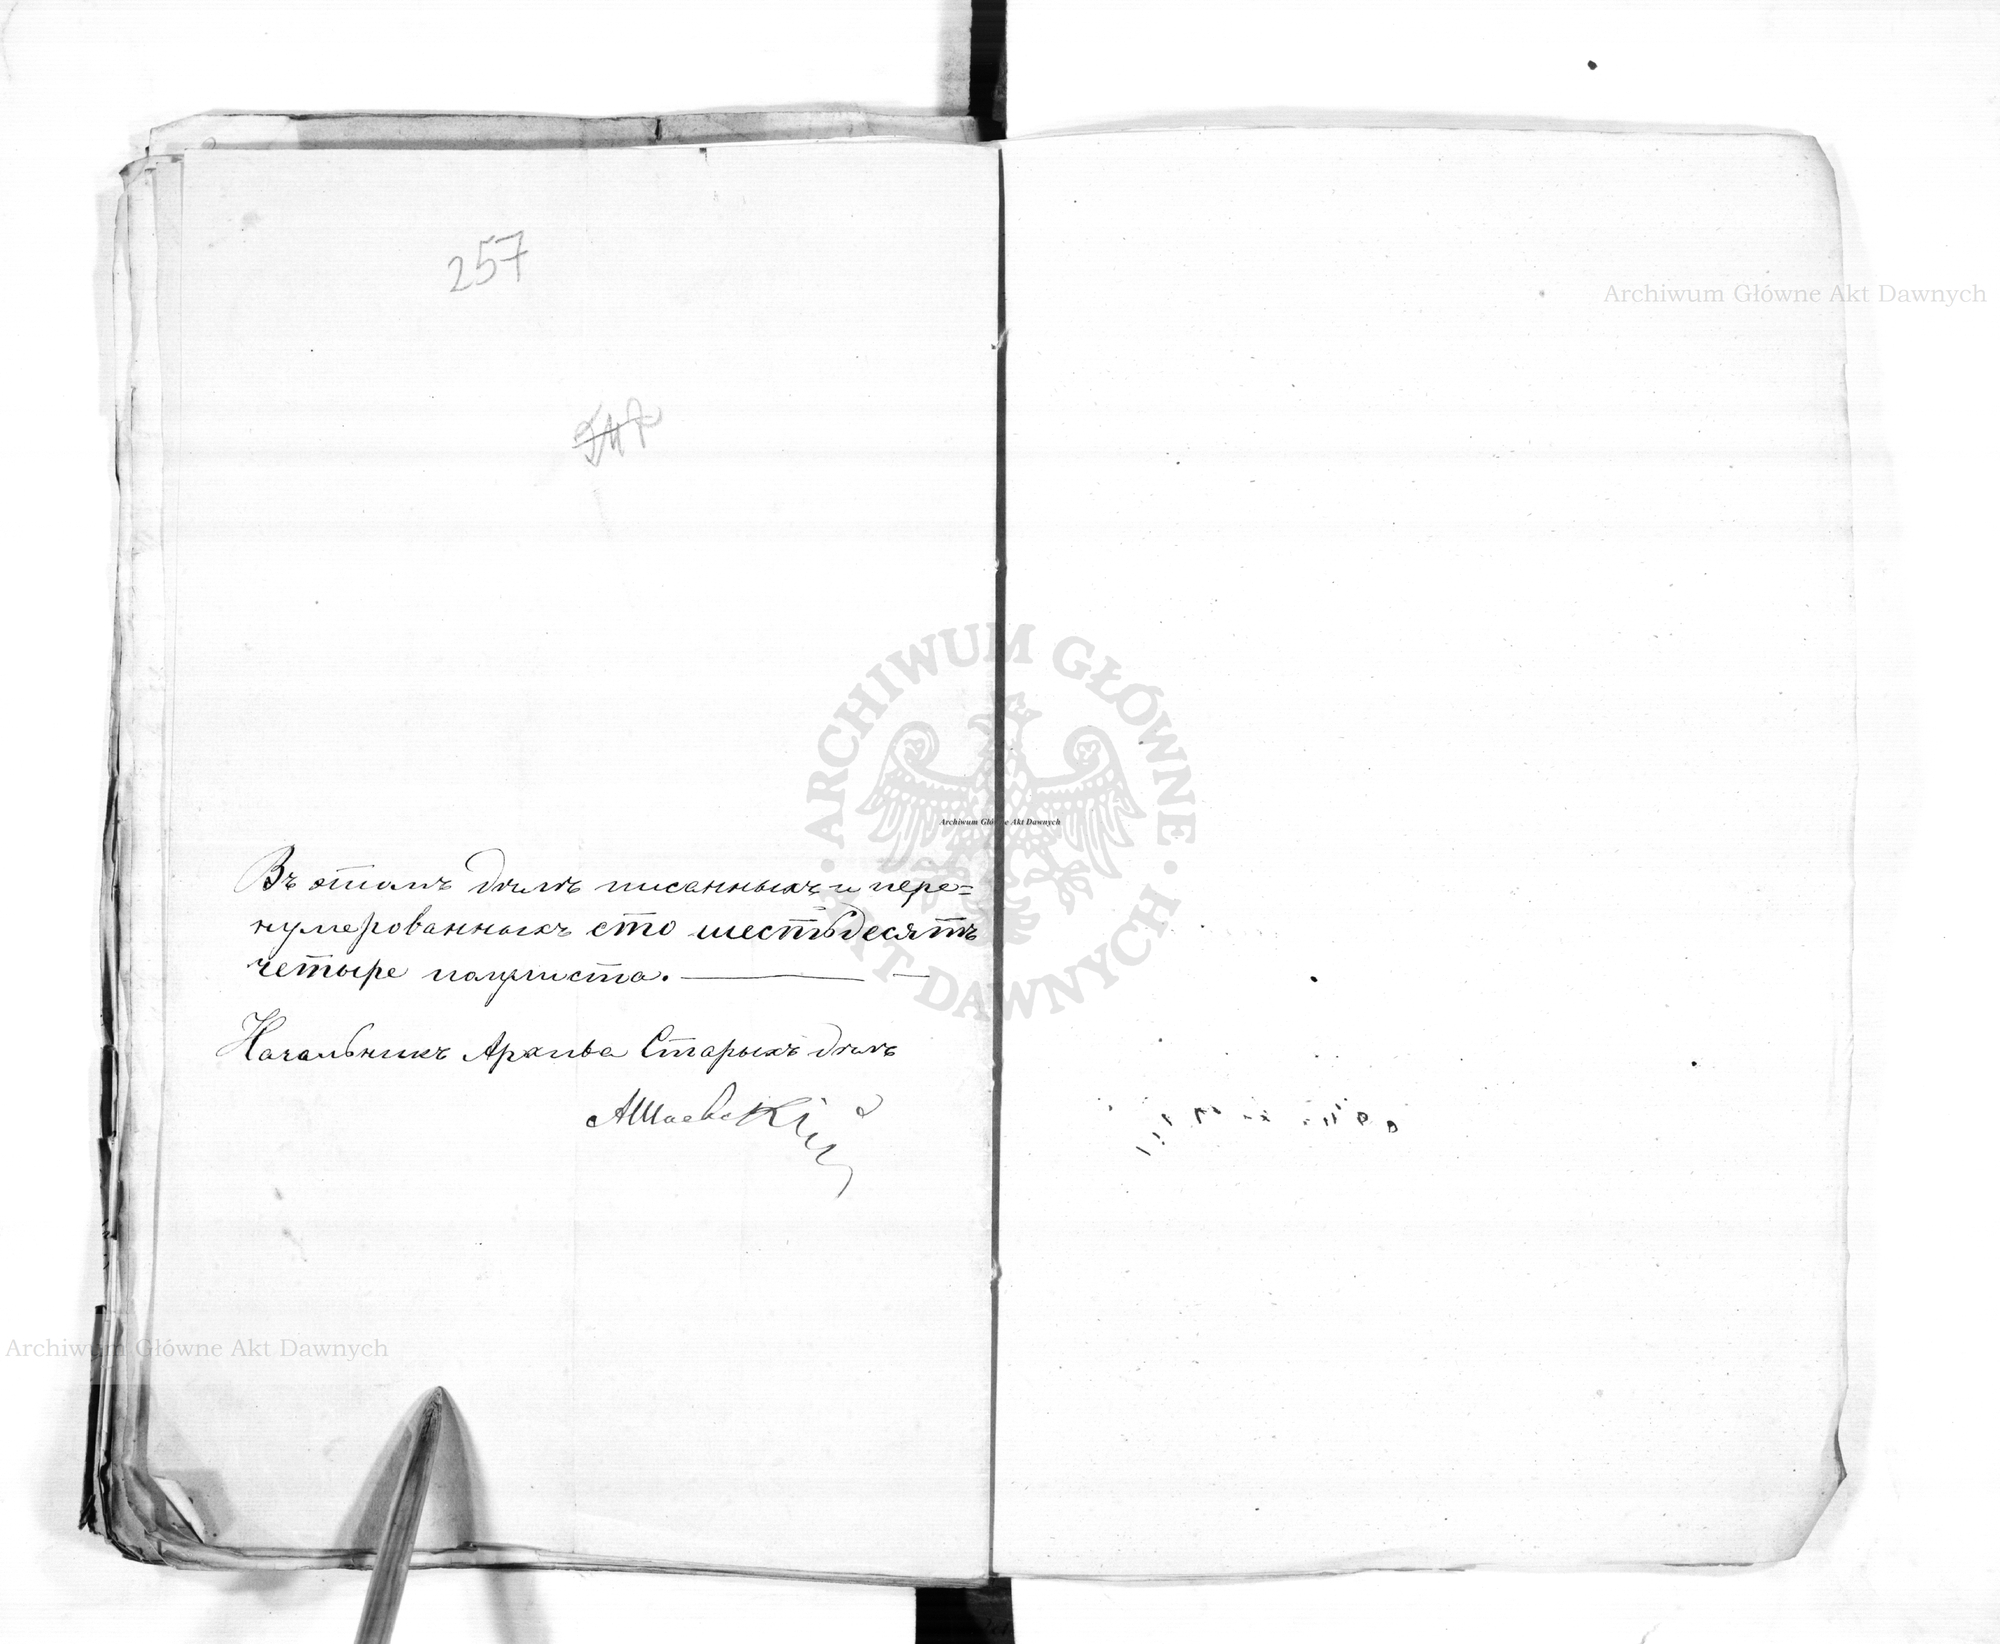 257
Archiwum Główne Akt Dawnych
ARCHIWUM GŁÓWNE AKT DAWNYCH
Archiwum Główne Akt Dawnych
Въ этомъ дѣлѣ писанныхъ и пере=
нумерованныхъ сто шестьдесятъ
четыре полулиста.
Начальникъ Архива Старыхъ дѣлъ
Archiwum Główne Akt Dawnych